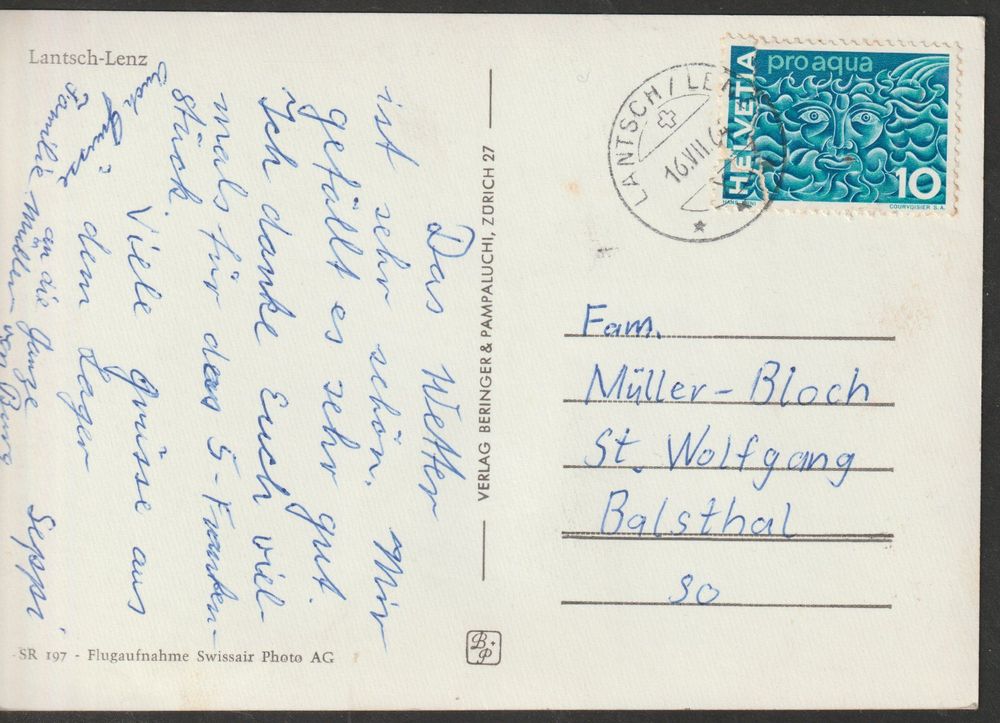 Lantsch-Lenz
Das Wetter
ist sehr schön. Mir
gefällt es sehr gut.
Ich danke Euch viel-
mals für das 5-Franken-
stück.
Viele Grüsse aus
dem Lager
Seppi
Auch Grüsse
an die ganze
Familie Müller von
VERLAG BERINGER & PAMPALUCHI, ZÜRICH 27
SR 197 - Flugaufnahme Swissair Photo AG
B+P
LANTSCH/LENZ
16.VIII.
HELVETIA
pro aqua
10
HANS ERNI
COURVOISIER S.A.
Fam.
Müller-Bloch
St. Wolfgang
Balsthal
SO